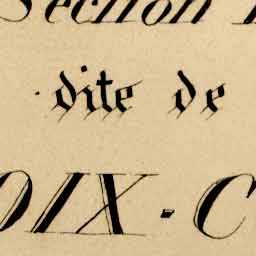 Section
dite de
OIX - C